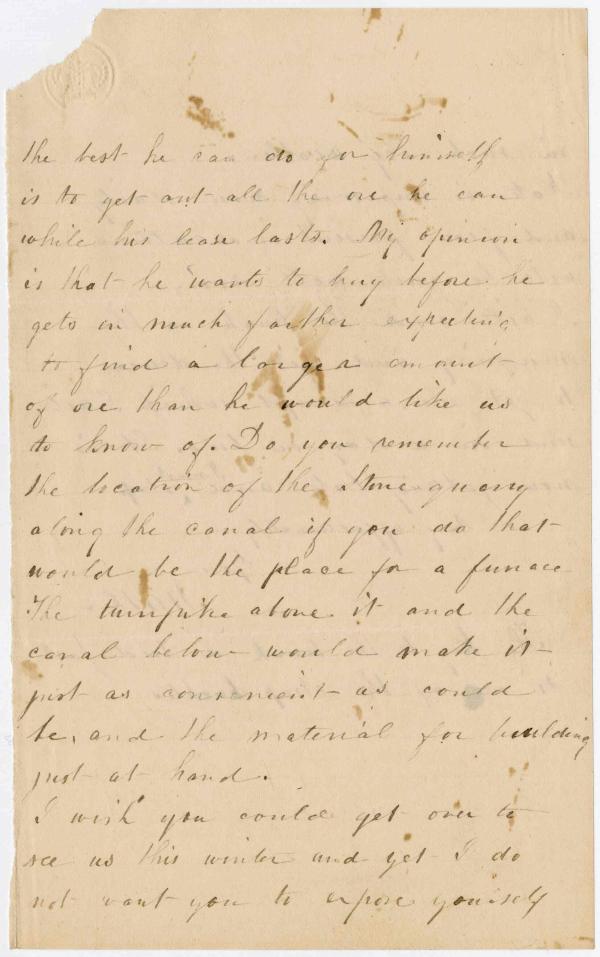 the best he can do for himself
is to get out all the ore he can
while his lease lasts. My opinion
is that he wants to buy before he
gets in much farther expecting
to find a larger amount
of ore than he would like us
to know of. Do you remember
the location of the Stone quarry
along the canal if you do that
would be the place for a furnace
The turnpike above it and the
canal below would make it
just as convenient as could
be, and the material for building
just at hand.
I wish you could get over to
see us this winter and yet I do
not want you to expose yourself